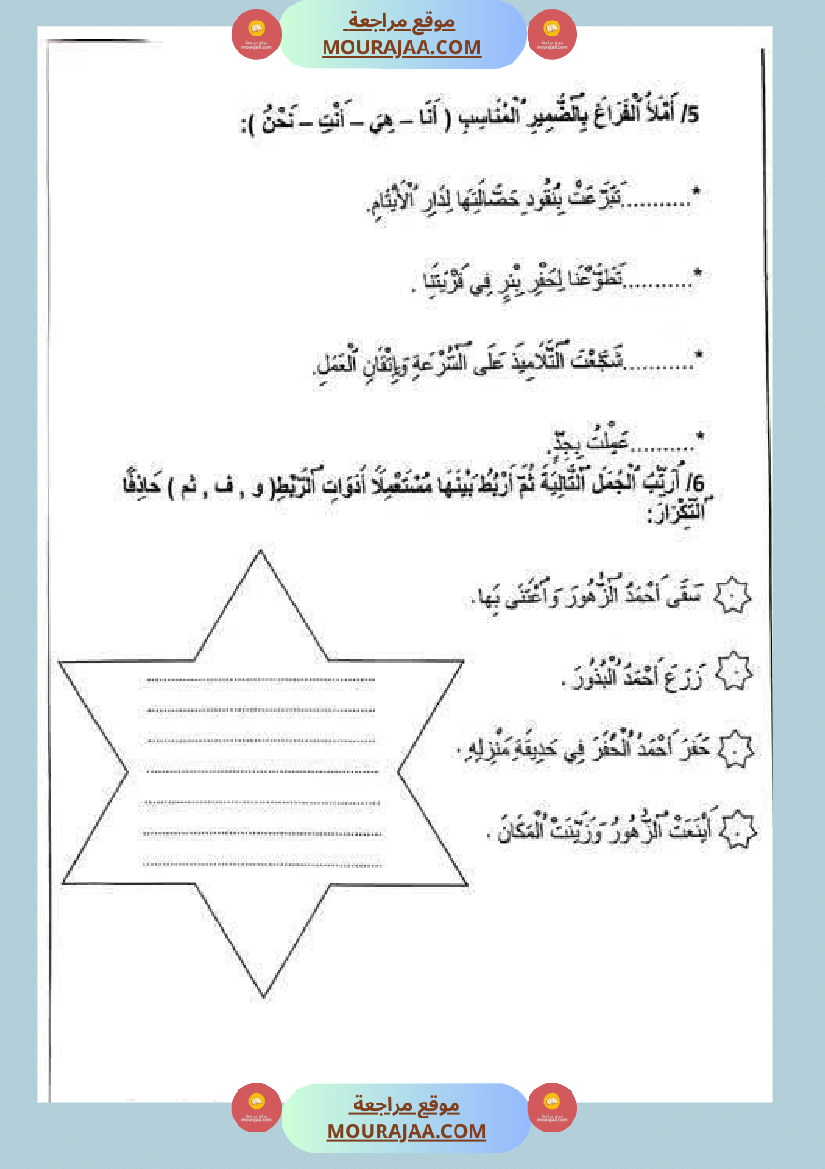 موقع مراجعة
MOURAJAA.COM
5/ أَمْلَأُ ٱلْفَرَاغَ بِٱلضَّمِيرِ ٱلْمُنَاسِبِ ( أَنَا – هِيَ – أَنْتِ – نَحْنُ ):
*...........تَبَرَّعَتْ بِنُقُودِ حَصَّالَتِهَا لِدَارِ ٱلْأَيْتَامِ.
*...........تَطَوَّعْنَا لِحَفْرِ بِئْرٍ فِي قَرْيَتِنَا .
*...........شَجَّعْتِ ٱلتَّلَامِيذَ عَلَى ٱلسُّرْعَةِ وَإِتْقَانِ ٱلْعَمَلِ.
*..........عَمِلْتُ بِجِدٍّ.
6/ أُرَتِّبُ ٱلْجُمَلَ ٱلتَّالِيَةَ ثُمَّ أَرْبُطُ بَيْنَهَا مُسْتَعْمِلًا أَدَوَاتِ ٱلرَّبْطِ( و , ف , ثم ) حَاذِفًا
ٱلتِّكْرَارَ:
سَقَى أَحْمَدُ ٱلزُّهُورَ وَٱعْتَنَى بِهَا.
زَرَعَ أَحْمَدُ ٱلْبُذُورَ .
حَفَرَ أَحْمَدُ ٱلْحُفَرَ فِي حَدِيقَةِ مَنْزِلِهِ .
أَيْنَعَتْ ٱلزُّهُورُ وَزَيَّنَتْ ٱلْمَكَانَ .
موقع مراجعة
MOURAJAA.COM